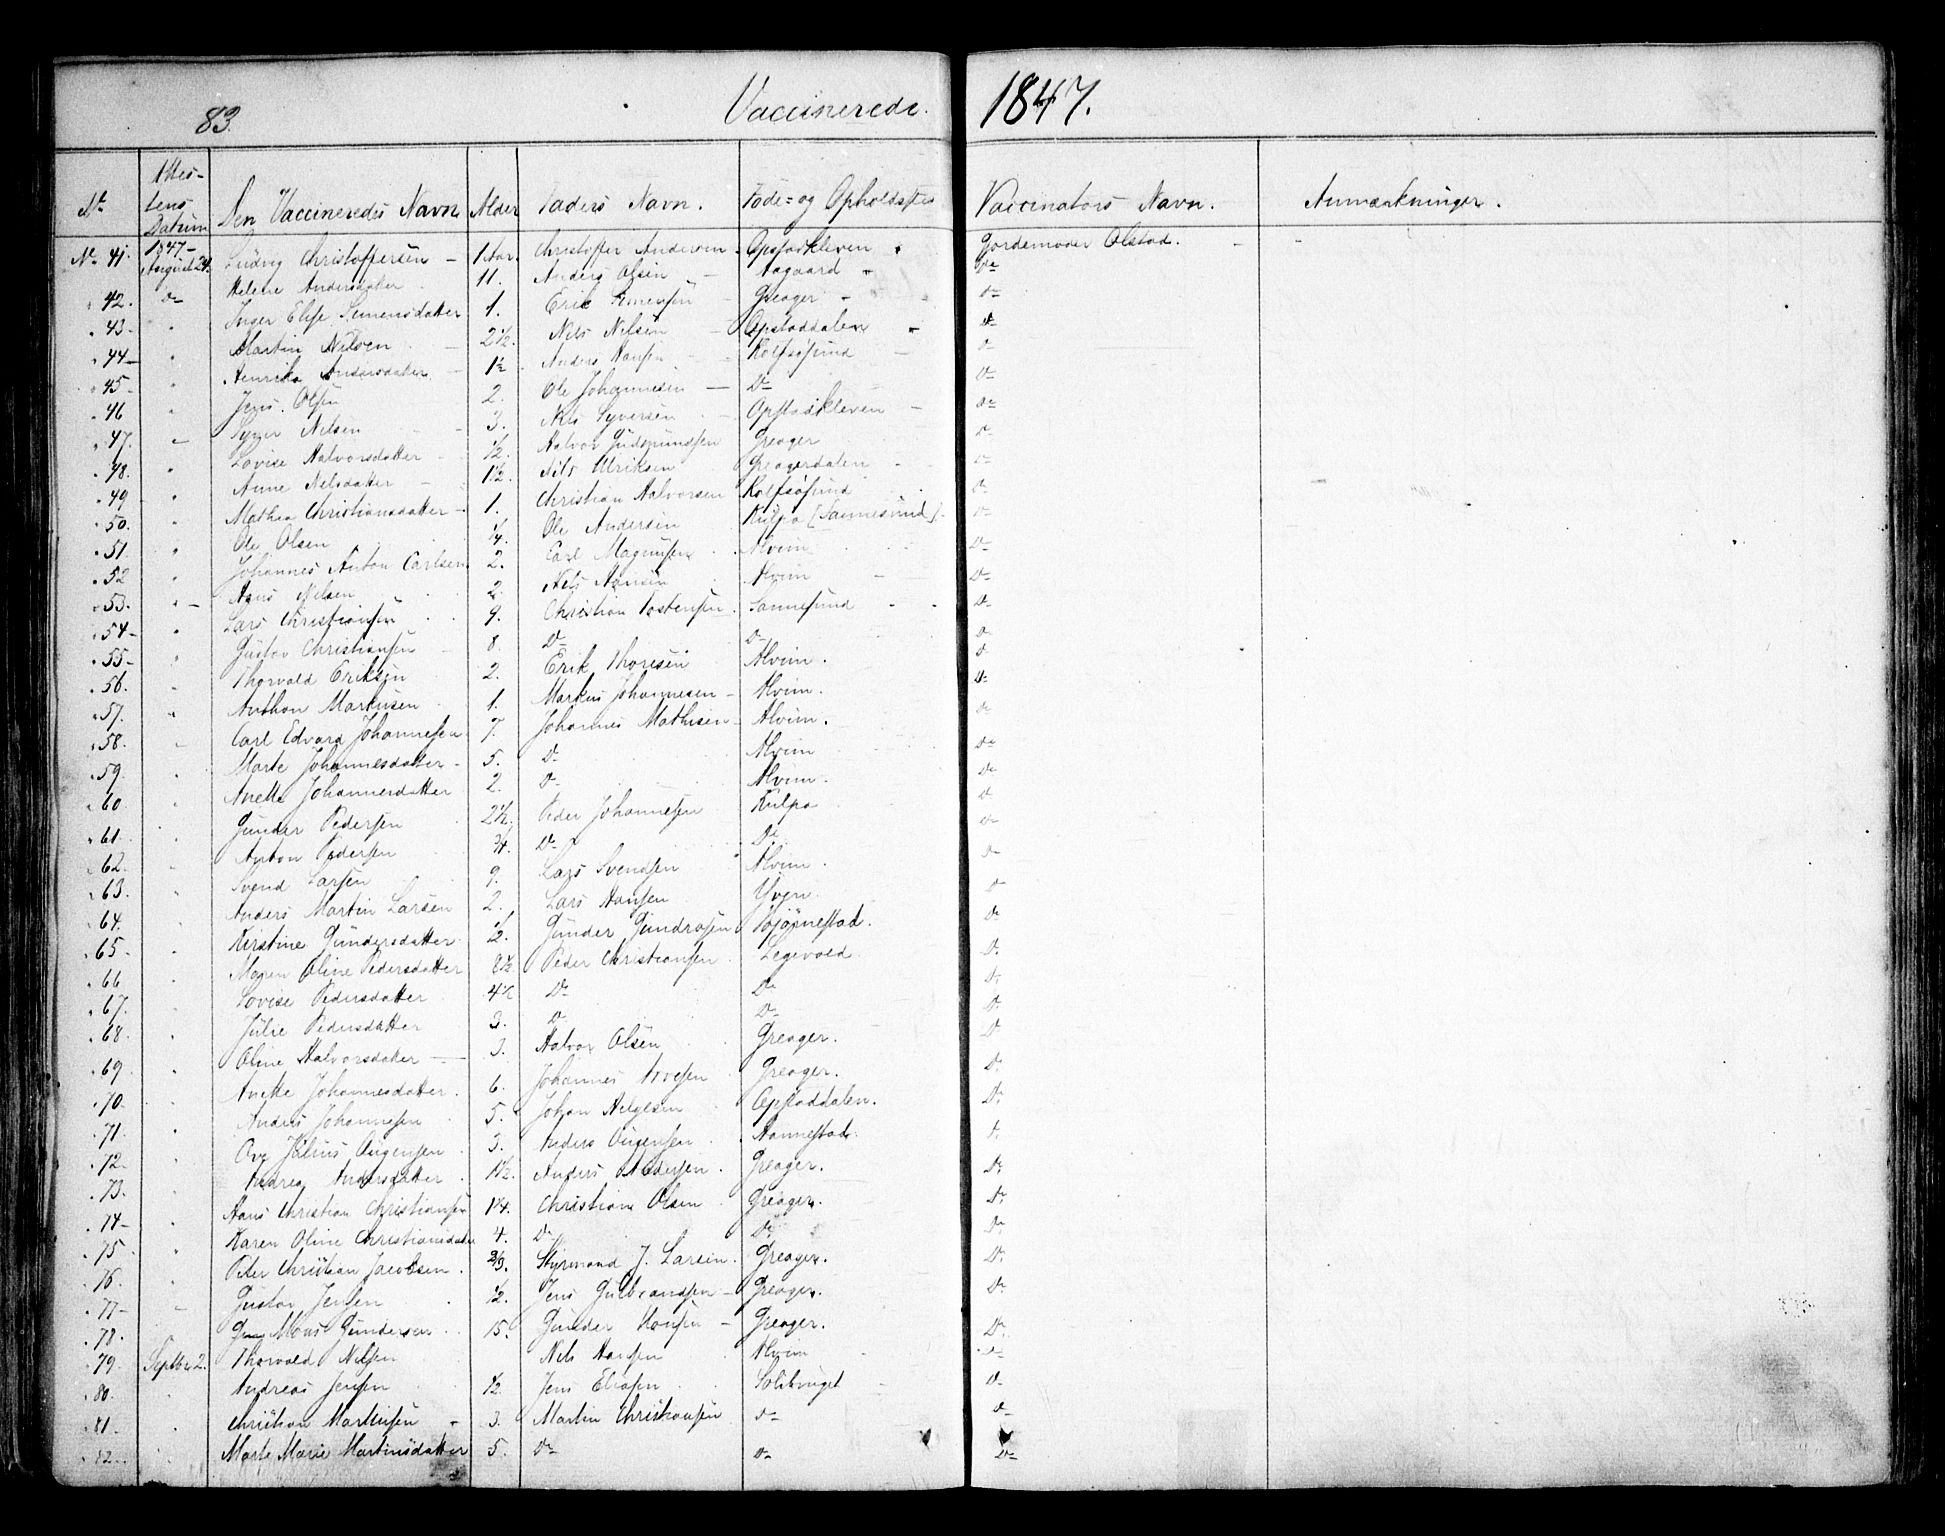 83. Vaccinerede. 1847.
No. Attes- tens Datum Den Vaccineredes Navn. Alder Faders Navn. Føde- og Opholdssted Vaccinators Navn. Anmærkninger.
No 41. 1847 August 24. Ludvig Christoffersen 1 Aar. Christoffer Andersen Opstadkleven Jordemoder Olstad.
" 42. D Helene Andersdatter 11. Anders Olsen Aagaard D
" 43. " Inger Elise Simensdatter 1. Erik Simensen Greager D
" 44 " Martin Nilsen 2 1/2. Nils Nilsen Opstaddalen D
" 45. " Henrika Andersdatter 1 1/2 Anders Hansen Rolfsøsund D
" 46 " Jens Olsen 2. Ole Johannesen D D
" 47. " Syver Nilsen 3. Nils Syversen Opstadkleven D
" 48. " Lovise Halvorsdatter 1/2. Halvor Gudmundsen Greager D
" 49 " Anne Nilsdatter 1 1/2. Nils Ulriksen Greagerdalen D
" 50. " Mathea Christiansdatter 1. Christian Halvorsen Rolfsøsund D
" 51. " Ole Olsen 1/4. Ole Andersen Kulpo [Sannesund] D
" 52 " Johannes Anton Carlsen 2. Carl Magnusen Alvim D
" 53. " Hans Nilsen 2. Nils Hansen Alvim D
" 54 " Lars Christiansen 9. Christian Tostensen Sannesund D
" 55 " Gustav Christiansen 8. D D D
" 56. " Thorvald Eriksen 2. Erik Thoresen Alvim. D
" 57. " Anthon Markusen 1. Markus Johannesen Alvim. D
" 58. " Carl Edvard Johannesen 7. Johannes Mathisen Alvim. D
" 59. " Marte Johannesdatter 5. D Alvim D
" 60 " Anette Johannesdatter 2. D Alvim. D
" 61. " Gunder Pedersen 2 1/2. Peder Johannesen Kulpo D
" 62. " Anton Pedersen 3/4. D D D
" 63. " Svend Larsen 9. Lars Svendsen Alvim. D
" 64. " Anders Martin Larsen 2. Lars Hansen Yven. D
" 65. " Kirstine Gundersdatter 1/2. Gunder Gundrosen Bjørnestad. D
" 66 " Maren Oline Pedersdatter 8 1/2 Peder Christiansen Legevold. D
" 67. " Lovise Pedersdatter 4 1/2 D D D
" 68. " Julie Pedersdatter 3. D D D
" 69 " Oline Halvorsdatter 3. Halvor Olsen Greager. D
" 70. " Anette Johannesdatter. 6. Johannes Greager. D
" 71. " Anders Johannesen 5. Johan Helgesen Opstaddalen. D
" 72. " Julius 3. Hannestad. D
" 73. " Andersdatter 1 1/2. Anders Pedersen. Greager. D
" 74 " Hans Christian Christiansen 1 1/4. Christian Olsen Greager. D
" 75 " Karen Oline Christiansdatter 4. D D D
" 76. " Peter Christian Jacobsen. Styrmand J. Larsen. Greager. D
" 77 " Gustav Jensen 1/2. Jens Gulbrandsen Greager. D
" 78. Mons Gundersen 15. Gunder Hansen Greager. D
" 79. Septbr 2. Thorvald Nilsen Nils Hansen Alvim D
" 80. " Andreas Jensen 1/2. Jens Eliasen Solibruget D
" 81. " Christian Martinsen 3. Martin Christiansen D D
" 82. " Marte Marie Martinsdatter 5. D D D